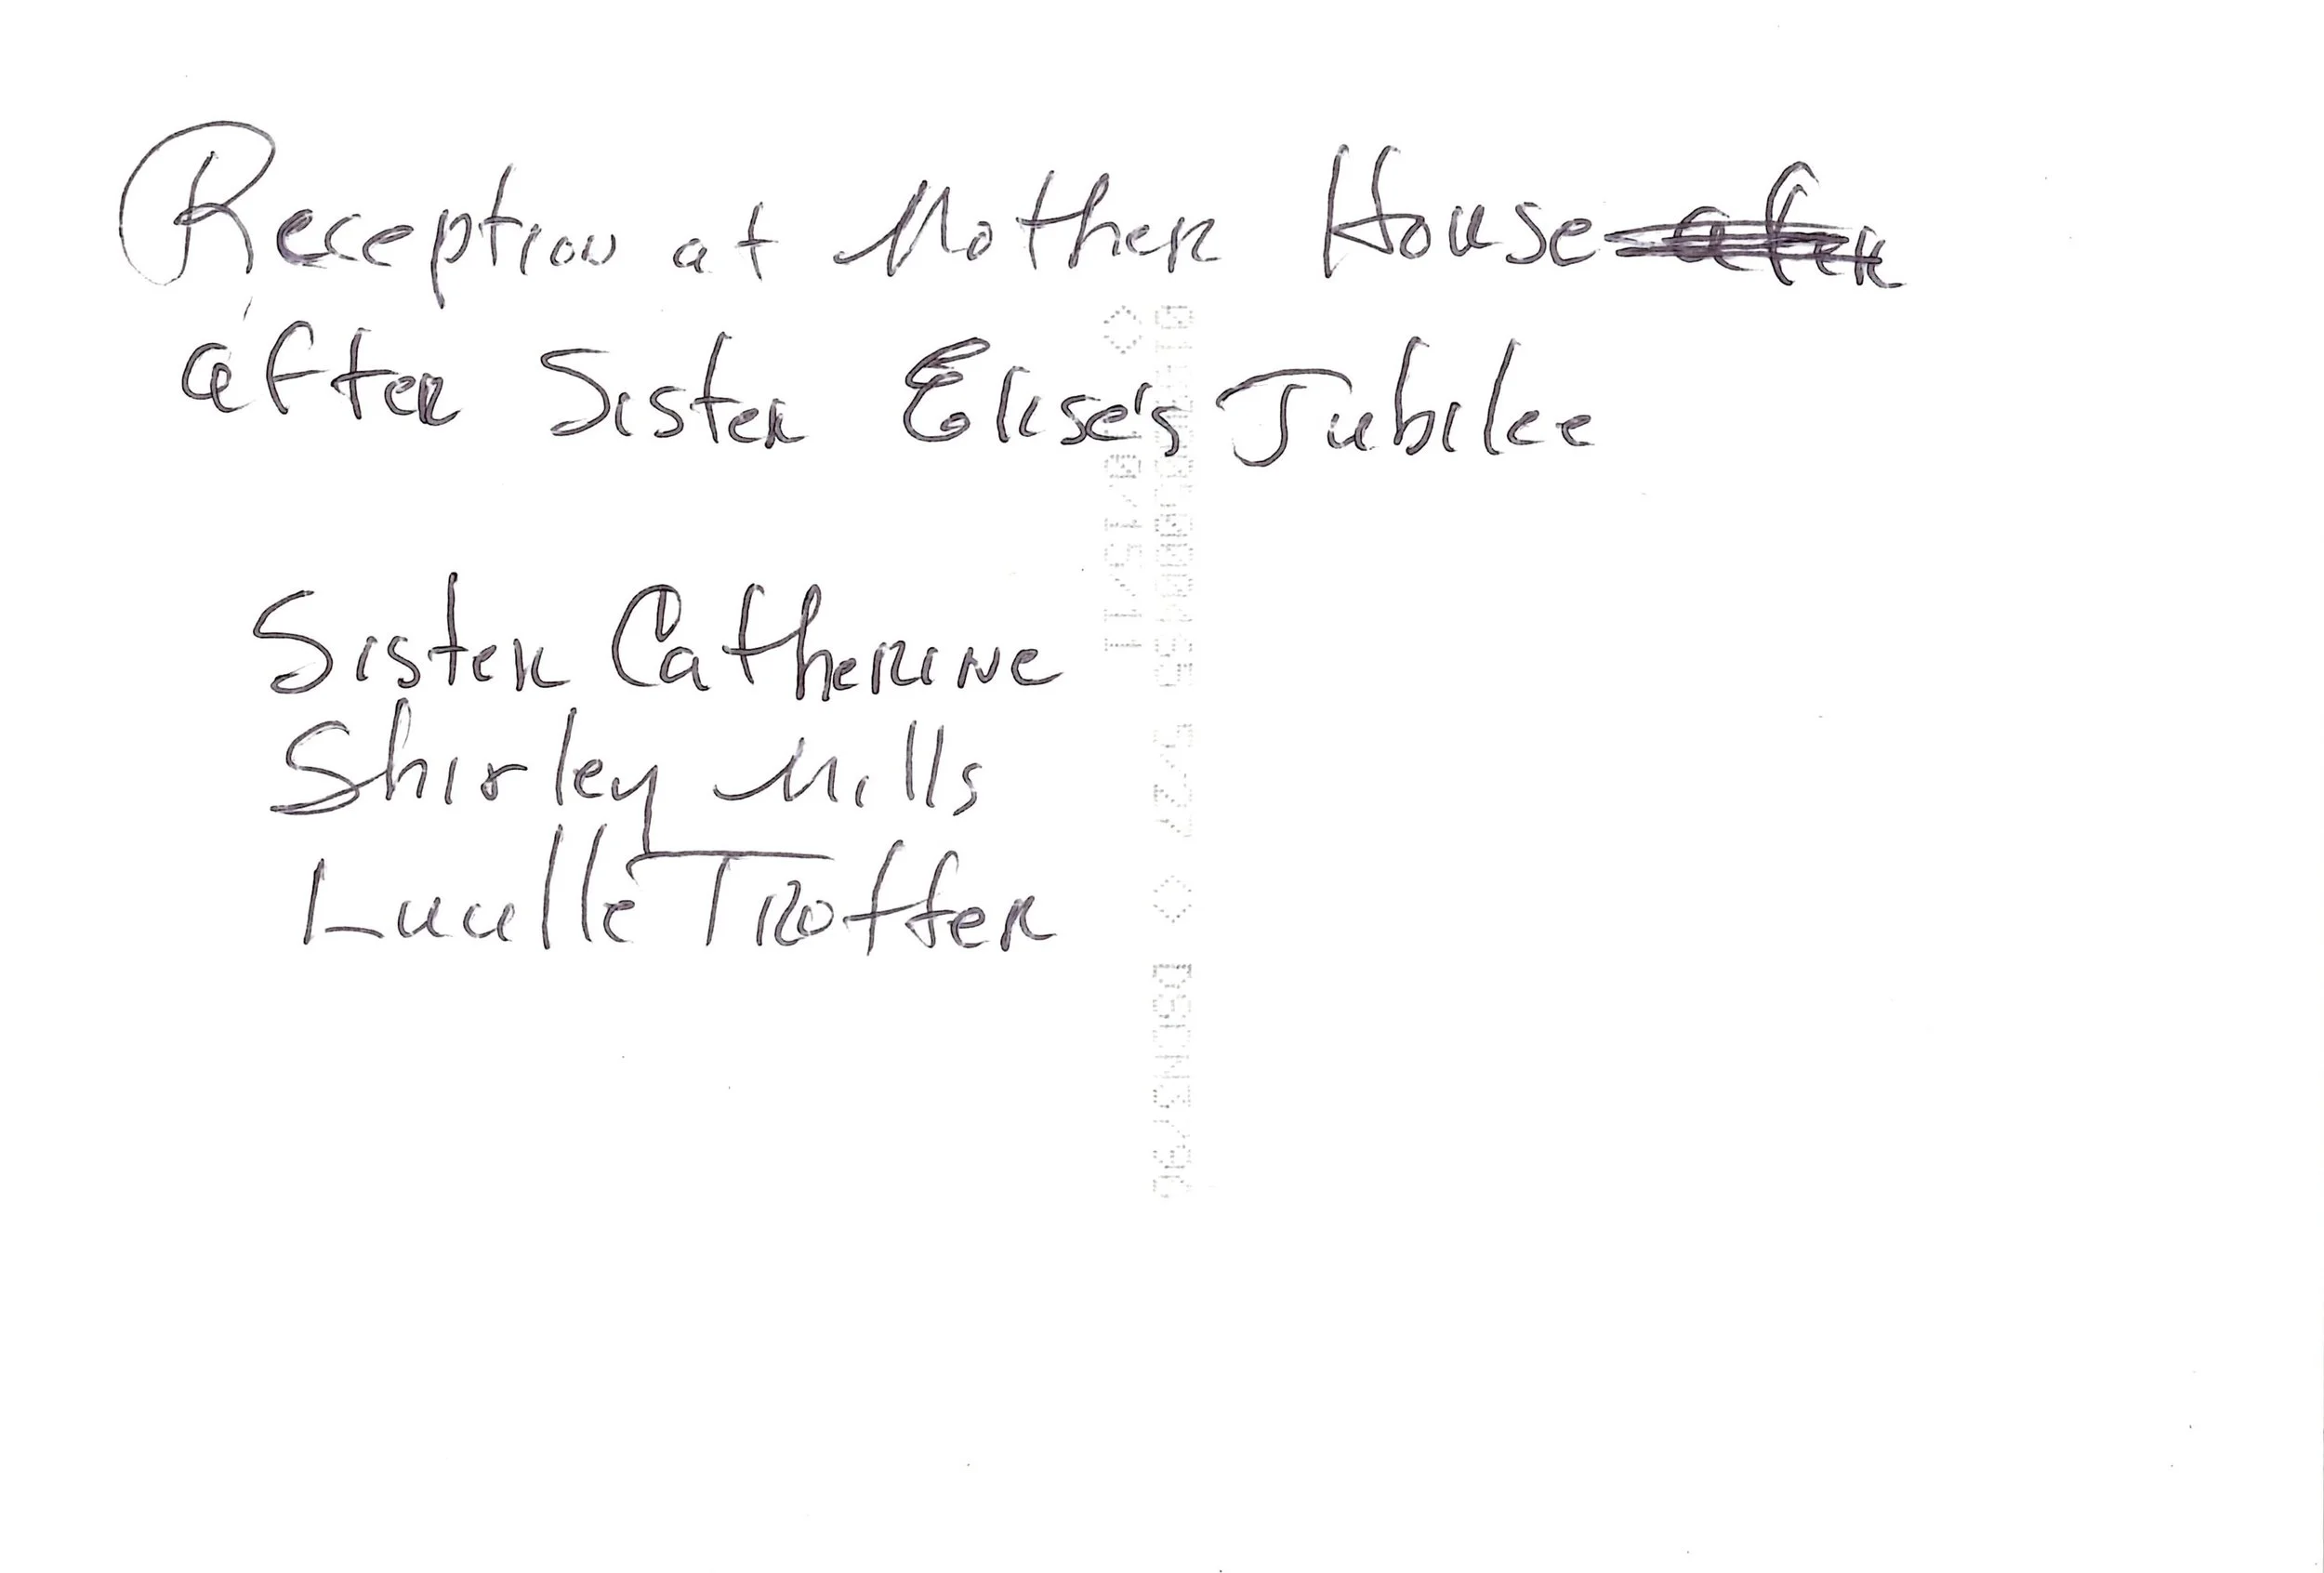 Reception at Mother House after
after Sister Elise's Jubilee
Sister Catherine
Shirley Mills
Lucille Troffer